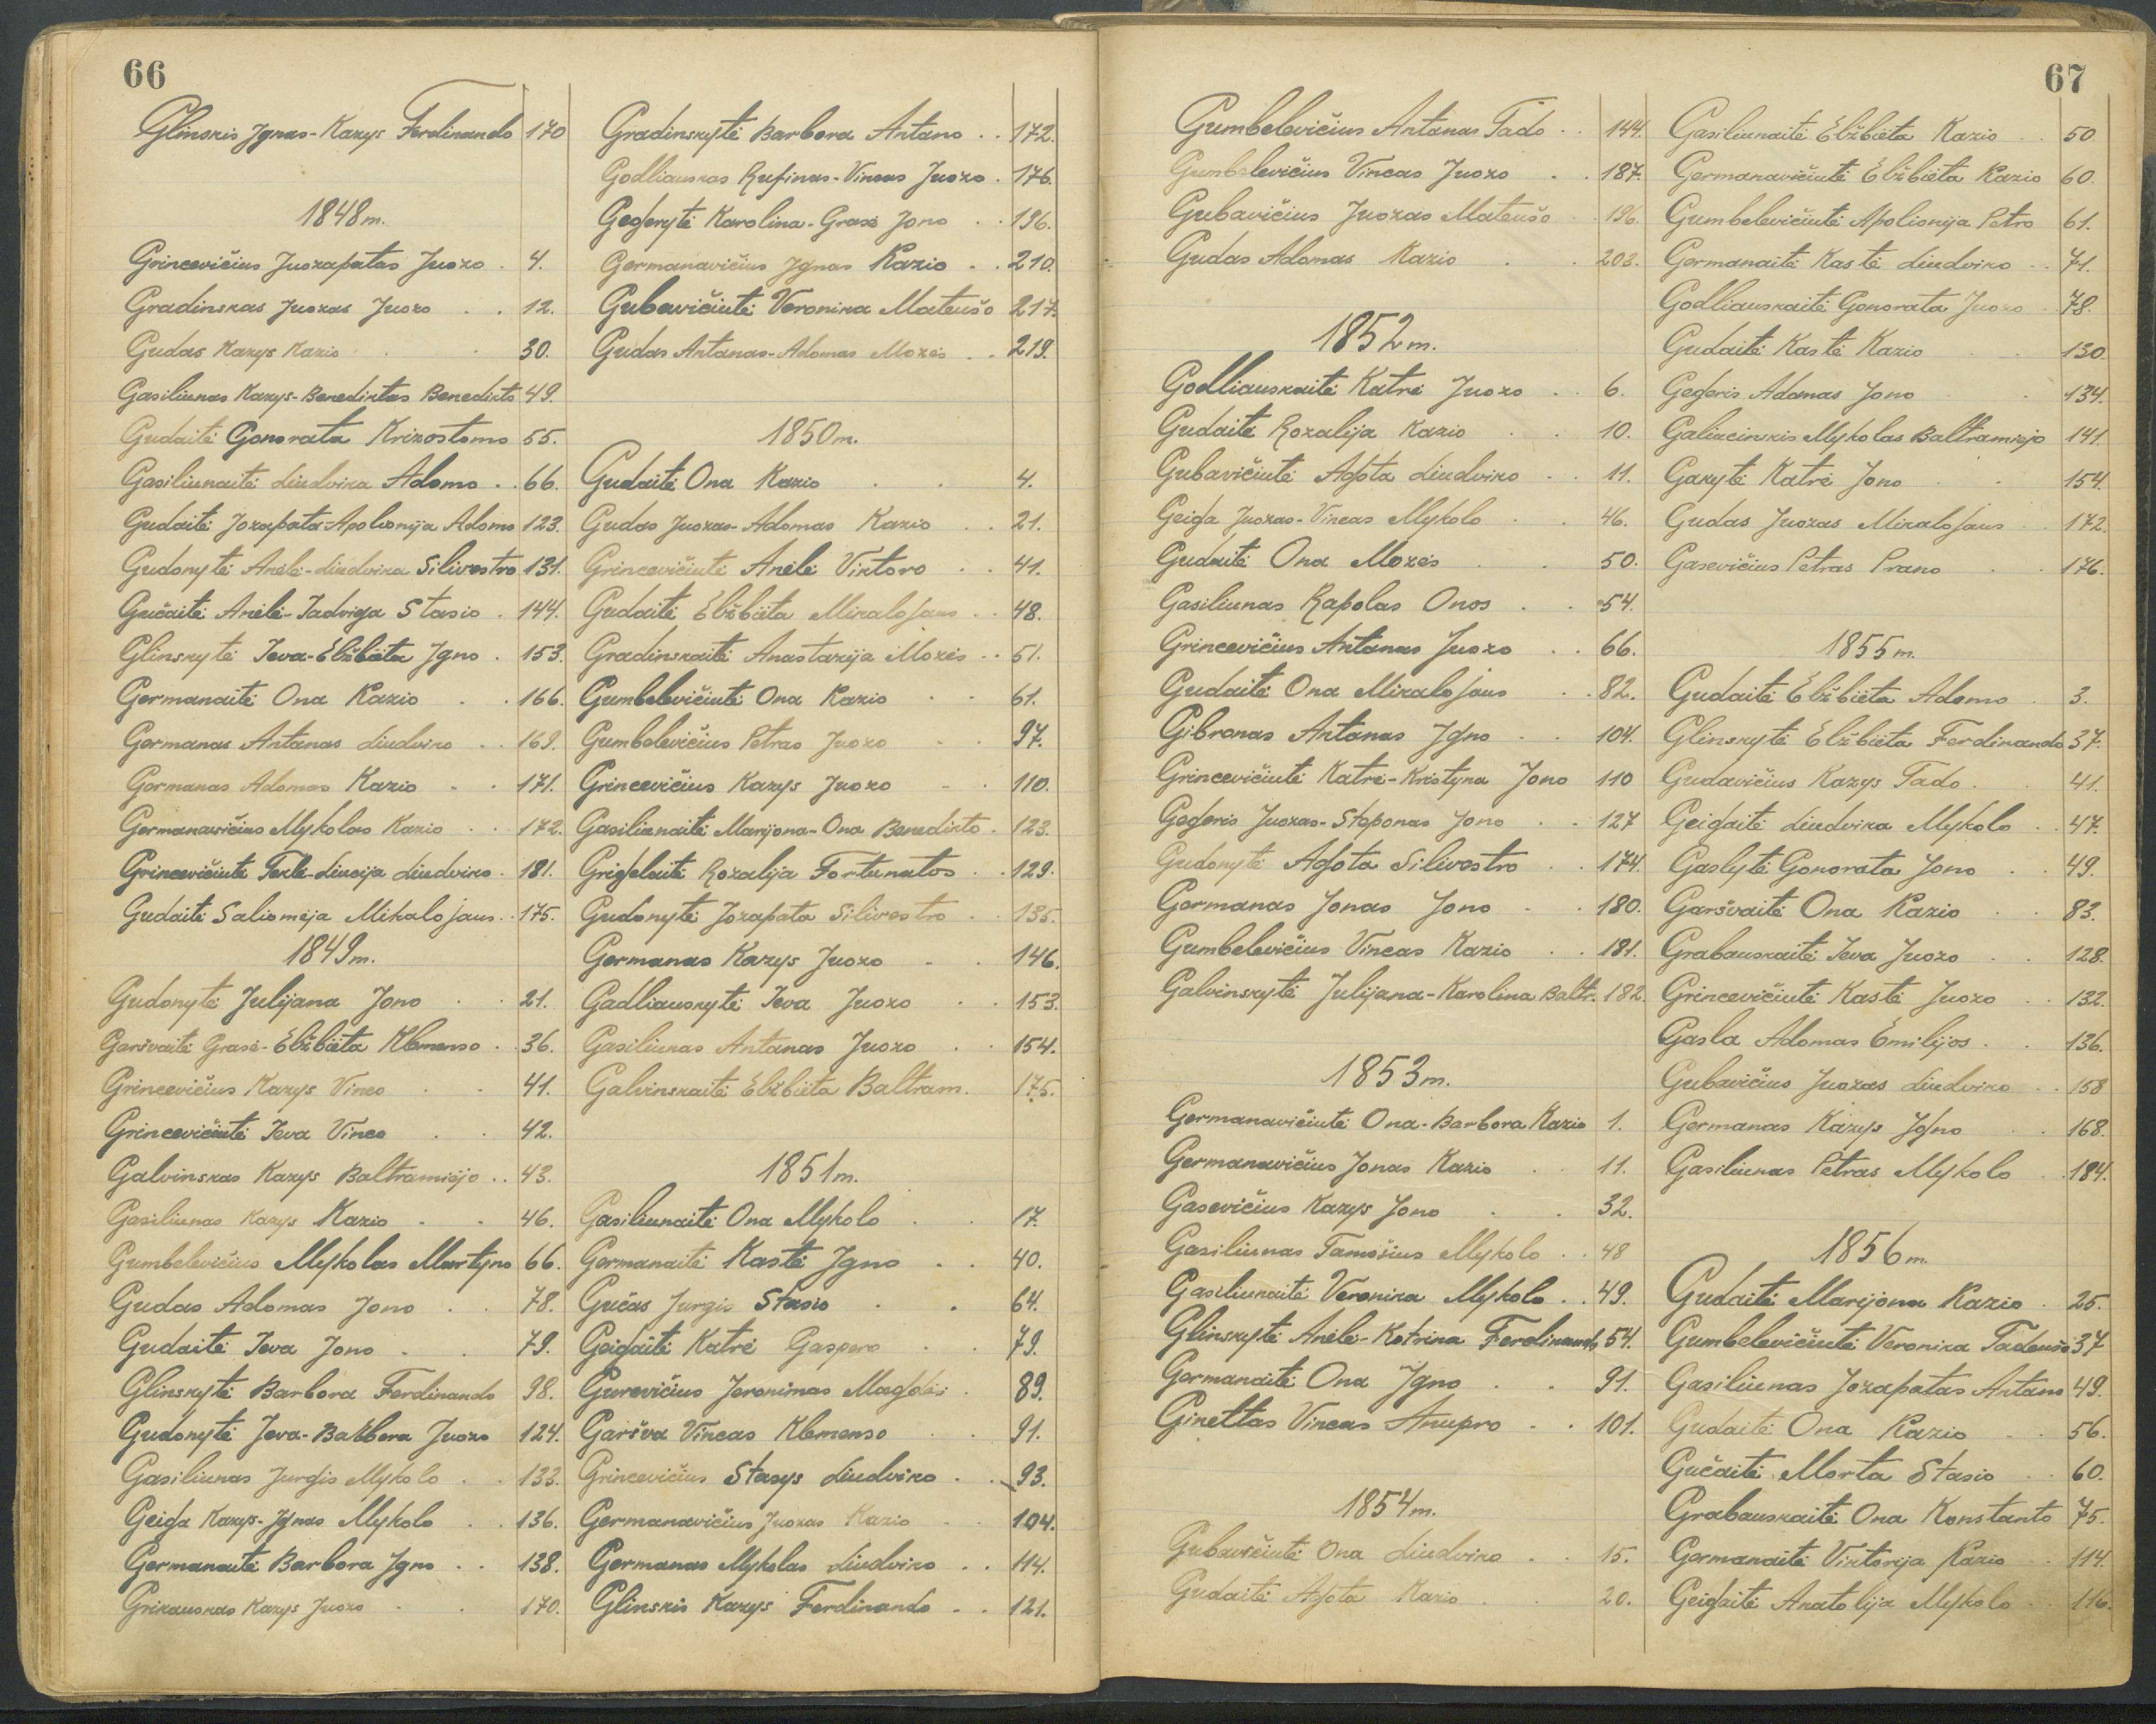 66
Glinskis Ignas-Kazys Ferdinando 170
1848 m.
Grincevičius Juozapatas Juozo . 4.
Gradinskas Juozas Juozo . . 12.
Gudas Kazys Kazio . . 30.
Gasiliunas Kazys-Benediktas Benedikto 49.
Gudaitė Gonorata Krizostomo 55.
Gasiliunaitė Liudvika Adomo . . 66.
Gudaitė Jozapata-Apolionija Adomo 123.
Gudonytė Anėlė-Liudvika Silivestro 131.
Gučaitė Anėlė-Jadviga Stasio . 144.
Glinskytė Ieva-Elžbieta Igno . 153.
Germanaitė Ona Kazio . . 166.
Germanas Antanas Liudviko . . 169.
Germanas Adomas Kazio . . 171.
Germanavičius Mykolas Kazio . . 172.
Grincevičiutė Teklė-Liucija Liudviko . 181.
Gudaitė Saliomėja Mikalojaus . . 175.
1849 m.
Gudonytė Julijana Jono . . 21.
Garšvaitė Grasė-Elžbieta Klemenso . . 36.
Grincevičius Kazys Vinco . . 41.
Grincevičiutė Ieva Vinco . . 42.
Galvinskas Kazys Baltramiejo . . 43.
Gasiliunas Kazys Kazio . . 46.
Gumbelevičius Mykolas Martyno 66.
Gudas Adomas Jono . . 78.
Gudaitė Ieva Jono . . 79.
Glinskytė Barbora Ferdinando 98.
Gudonytė Ieva-Barbora Juozo 124.
Gasiliunas Jurgis Mykolo . . 133.
Geiga Kazys-Ignas Mykolo . . 136.
Germanaitė Barbora Igno . . 138.
Grikauskas Kazys Juozo . . 170.
Gradinskytė Barbora Antano . . 172.
Godliauskas Rufinas-Vincas Juozo . 176.
Gegerytė Karolina-Grasė Jono . . 196.
Germanavičius Ignas Kazio . . 210.
Gubavičiutė Veronika Mateušo 217.
Gudas Antanas-Adomas Mozės . . 219.
1850 m.
Gudaitė Ona Kazio . . 4.
Gudas Juozas-Adomas Kazio . . 21.
Grincevičiutė Anėlė Viktoro . . 41.
Gudaitė Elžbieta Mikalojaus . . 48.
Gradinskaitė Anastazija Mozės . . 51.
Gumbelevičiutė Ona Kazio . . 61.
Gumbelevičius Petras Juozo . . 97.
Grincevičius Kazys Juozo . . 110.
Gasiliunaitė Marijona-Ona Benedikto . 123.
Grigelaitė Rozalija Fortunatos . . 129.
Gudonytė Jozapata Silivestro . . 135.
Germanas Kazys Juozo . . 146.
Gadliauskytė Ieva Juozo . . 153.
Gasiliunas Antanas Juozo . . 154.
Galvinskaitė Elžbieta Baltram. 175.
1851 m.
Gasiliunaitė Ona Mykolo . . 17.
Germanaitė Kastė Igno . . 40.
Gučas Jurgis Stasio . . 64.
Geigaitė Katrė Gaspero . . 79.
Gurevičius Jeronimas Magdės . 89.
Garšva Vincas Klemenso . . 91.
Grincevičius Stasys Liudviko . . 93.
Germanavičius Juozas Kazio . . 104.
Germanas Mykolas Liudviko . . 114.
Glinskis Kazys Ferdinando . . 121.
67
Gumbelevičius Antanas Tado . . 144.
Gumbelevičius Vincas Juozo . . 187.
Gubavičius Juozas Mateušo . . 196.
Gudas Adomas Kazio . . 203.
1852 m.
Godliauskaitė Katrė Juozo . . 6.
Gudaitė Rozalija Kazio . . 10.
Gubavičiutė Agota Liudviko . . 11.
Geiga Juozas-Vincas Mykolo . . 46.
Gudaitė Ona Mozės . . 50.
Gasiliunas Rapolas Onos . . 54.
Grincevičius Antanas Juozo . . 66.
Gudaitė Ona Mikalojaus . . 82.
Gibronas Antanas Igno . . 104.
Grincevičiutė Katrė-Kristyna Jono 110
Gegeris Juozas-Steponas Jono . . 127
Gudonytė Agota Silivestro . . 174.
Germanas Jonas Jono . . 180.
Gumbelevičius Vincas Kazio . . 181.
Galvinskytė Julijana-Karolina Baltr. 182.
1853 m.
Germanavičiutė Ona-Barbora Kazio 1.
Germanavičius Jonas Kazio . . 11.
Gasevičius Kazys Jono . . 32.
Gasiliunas Tamošius Mykolo . . 48
Gasiliunaitė Veronika Mykolo . . 49.
Glinskytė Anėlė-Kotrina Ferdinando 54.
Germanaitė Ona Igno . . 91.
Ginettas Vincas Anupro . . 101.
1854 m.
Gubavičiutė Ona Liudviko . . 15.
Gudaitė Agota Kazio . . 20.
Gasiliunaitė Elžbieta Kazio . . 50.
Germanavičiutė Elžbieta Kazio 60.
Gumbelevičiutė Apolionija Petro 61.
Germanaitė Kastė Liudviko . . 71.
Godliauskaitė Gonorata Juozo . 78.
Gudaitė Kastė Kazio . . 130.
Gegeris Adomas Jono . . 134.
Galiacinskis Mykolas Baltramiejo 141.
Gazytė Katrė Jono . . 154.
Gudas Juozas Mikalojaus . . 172.
Gasevičius Petras Prano . . 176.
1855 m.
Gudaitė Elžbieta Adomo . 3.
Glinskytė Elžbieta Ferdinando 37.
Gudavičius Kazys Tado . . 41.
Geigaitė Liudvika Mykolo . . 47.
Gaslytė Gonorata Jono . . 49.
Garšvaitė Ona Kazio . . 83.
Grabauskaitė Ieva Juozo . . 128.
Grincevičiutė Kastė Juozo . . 132.
Gasla Adomas Emilijos . . 136.
Gubavičius Juozas Liudviko . . 158
Germanas Kazys Igno . . 168.
Gasiliunas Petras Mykolo . . 184.
1856 m.
Gudaitė Marijona Kazio . 25.
Gumbelevičiutė Veronika Tadeušo 37
Gasiliunas Jozapatas Antano 49.
Gudaitė Ona Kazio . . 56.
Gučaitė Morta Stasio . . 60.
Grabauskaitė Ona Konstanto 75.
Germanaitė Viktorija Kazio . . 114.
Geigaitė Anatolija Mykolo . . 116.